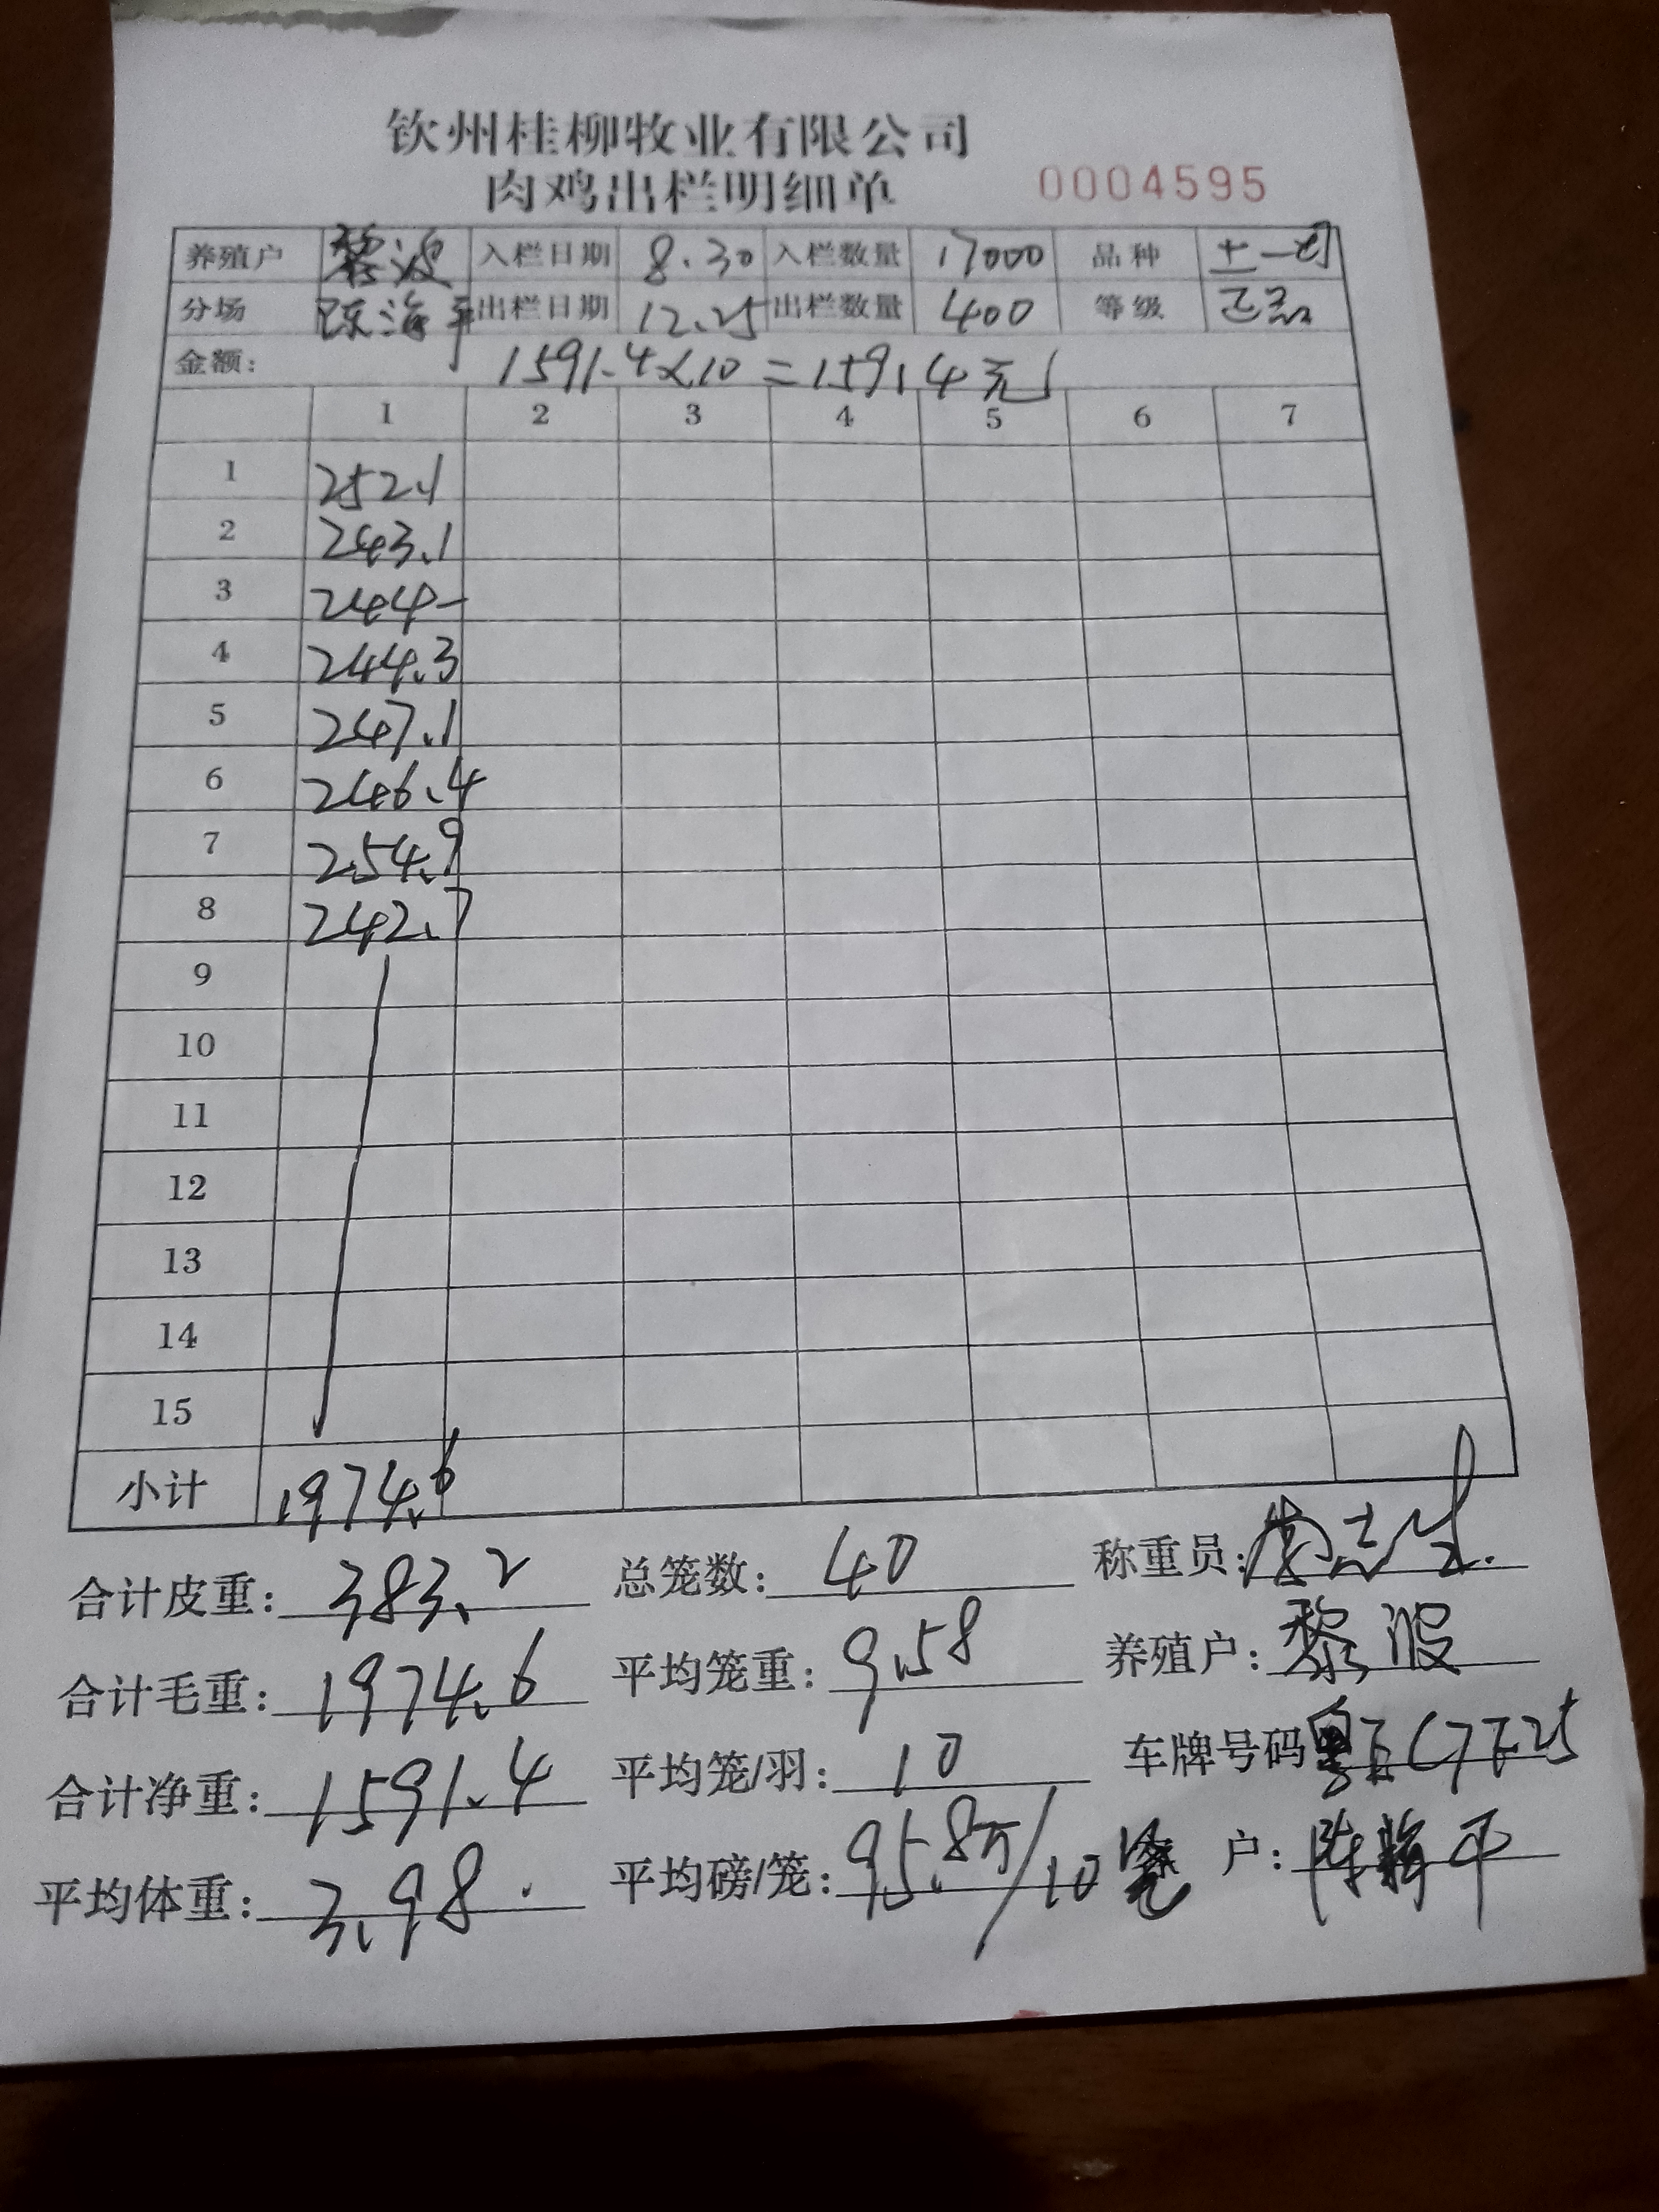 钦州桂柳牧业有限公司
肉鸡出栏明细单 0004595
养殖户 黎波 入栏日期 8.30 入栏数量 17000 品种 土一
分场 陈海平 出栏日期 12.25 出栏数量 400 等级 正品
金额: 1591.4×10=15914元
1 2 3 4 5 6 7
1 252.1
2 243.1
3 244-
4 244.3
5 247.1
6 246.4
7 254.9
8 242.7
9
10
11
12
13
14
15
小计 1974.6
合计皮重: 383.2 总笼数: 40 称重员:
合计毛重: 1974.6 平均笼重: 9.58 养殖户: 黎波
合计净重: 1591.4 平均笼/羽: 10 车牌号码
平均体重: 3.98 平均磅/笼: 95.8斤/10笼 户: 陈海平